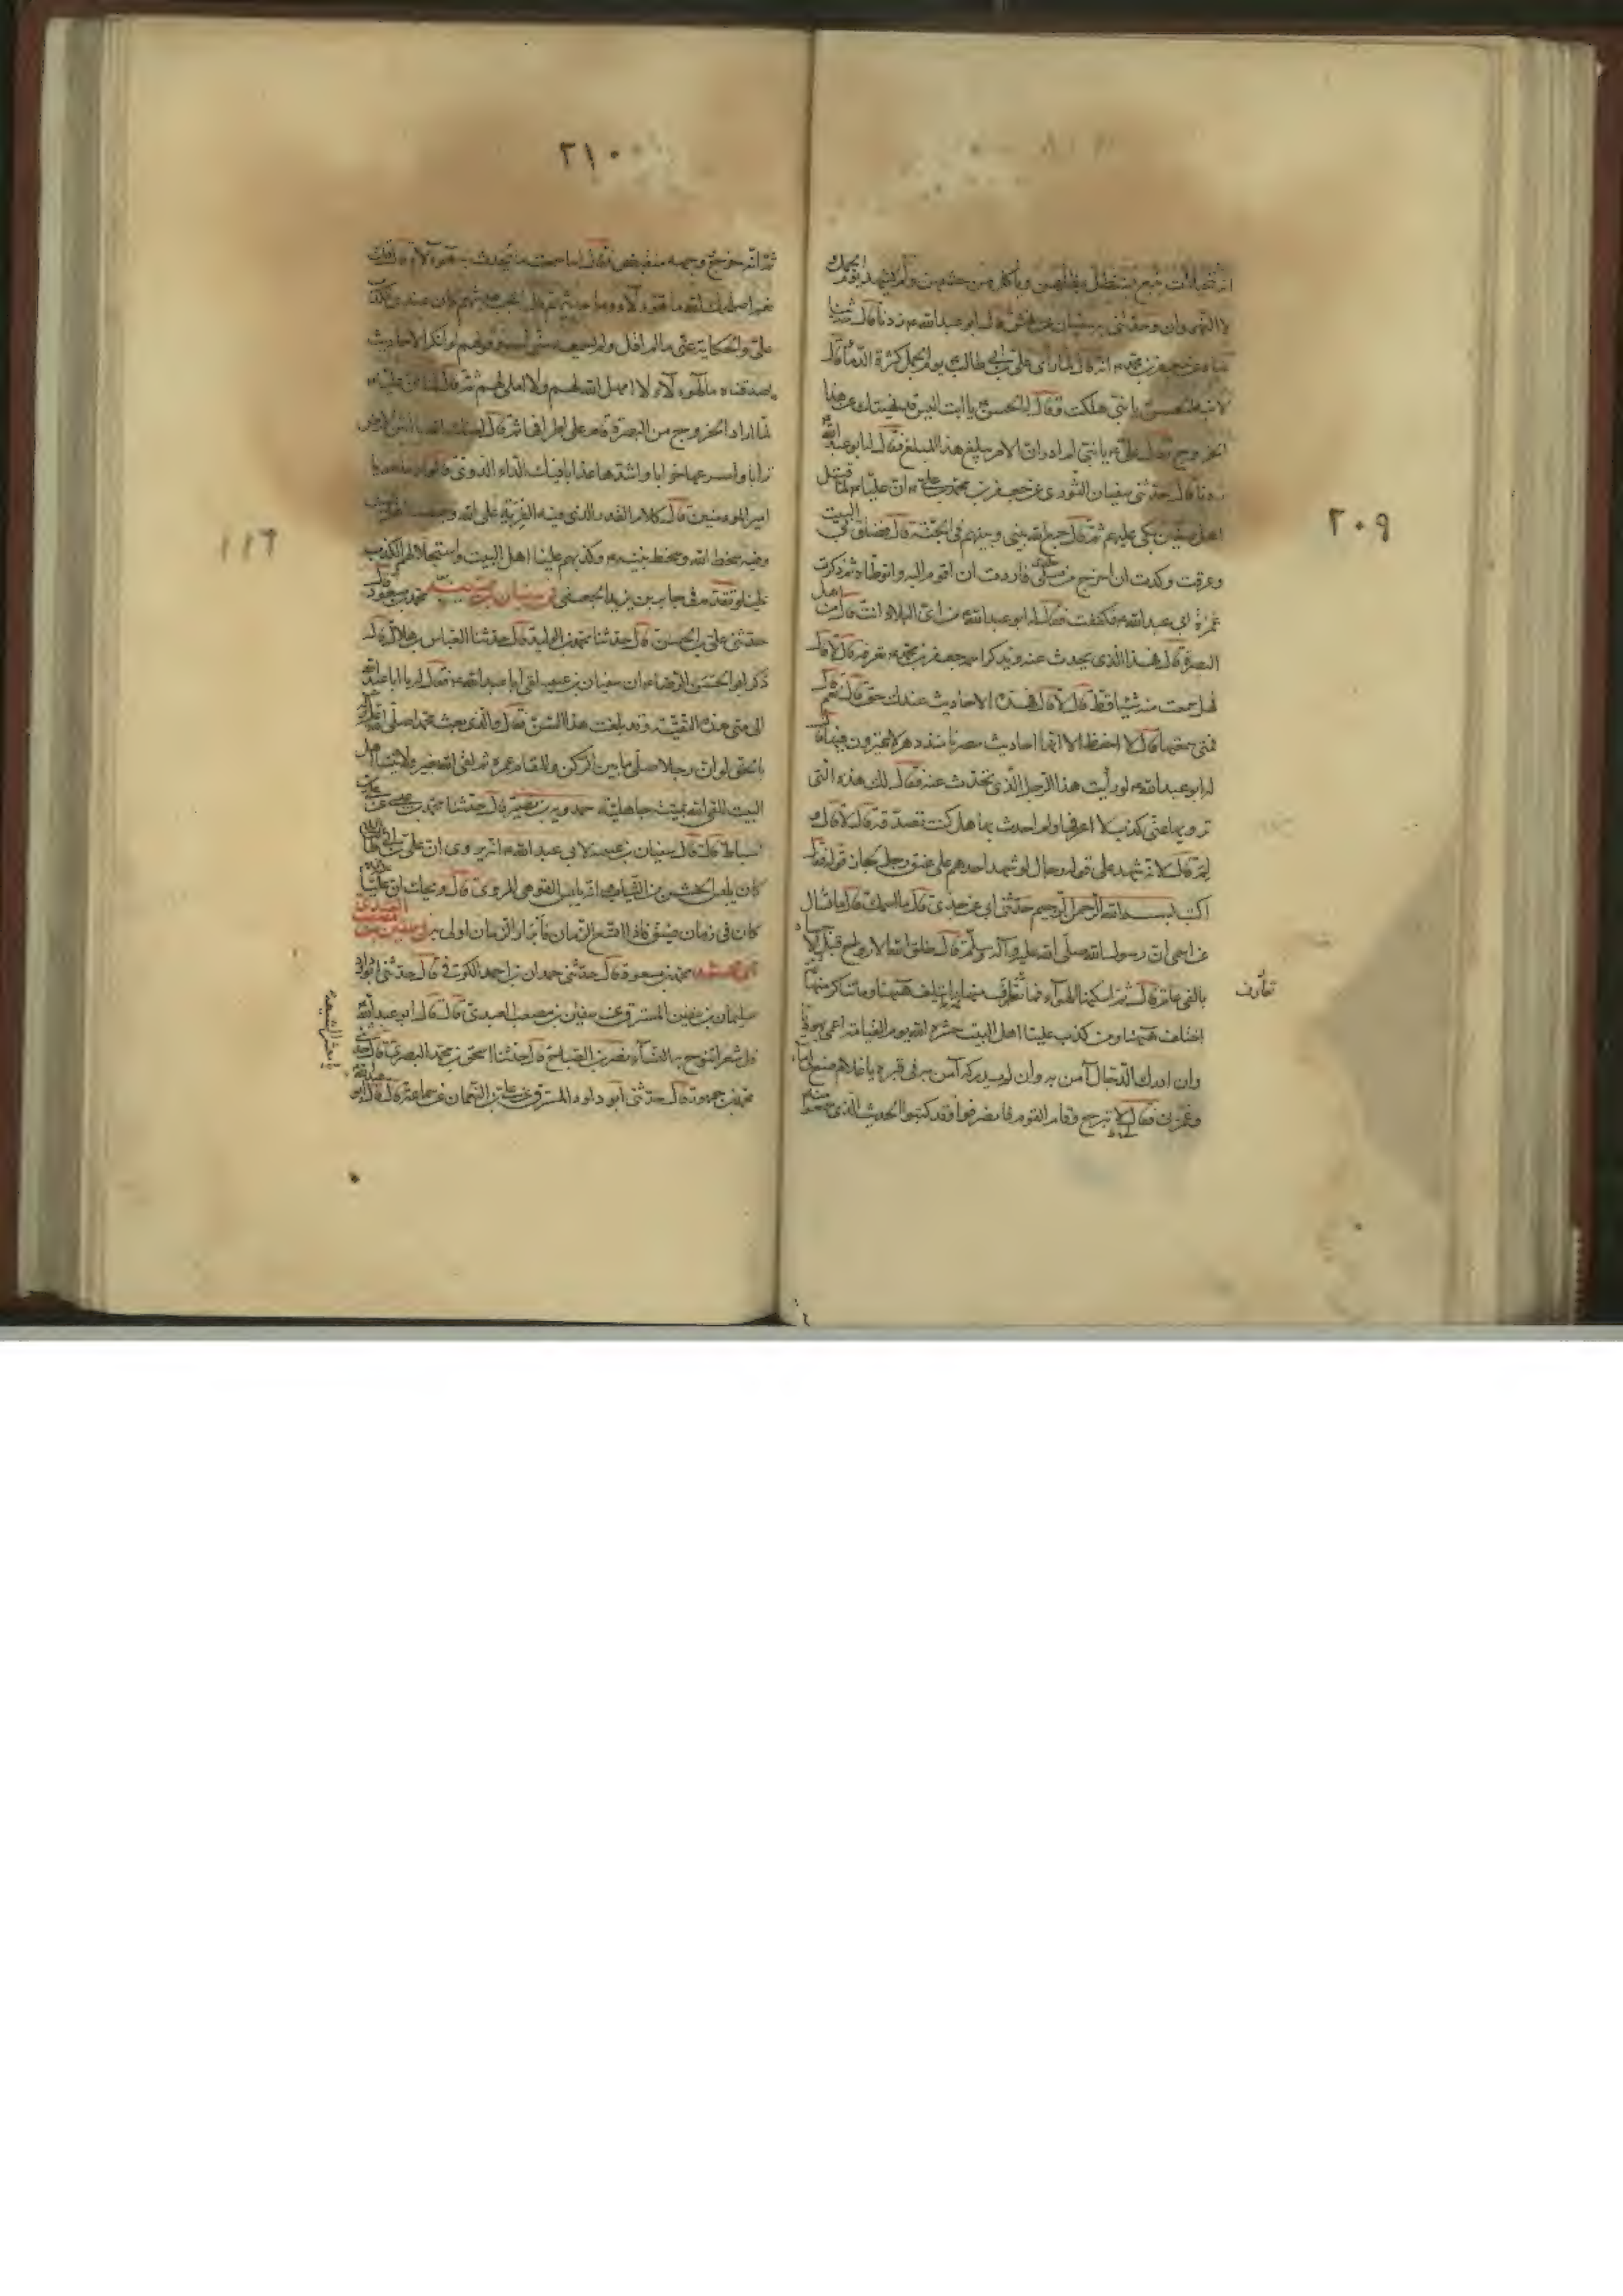 ٢٠٩
لا النهروان وحدثني به سفيان عن الحسن قال ابو عبد الله ع زدنا قال حدثنا
عباد عن جعفر بن محمد ع انه قال لما رأى علي بن ابي طالب يوم الجمل كثرة الدماء قال
لابنه الحسن يا بني هلكت فقال له الحسن يا ابت اليس قد نهيتك عن هذا
الخروج فقال علي ع يا بني لم ادر ان الامر يبلغ هذا المبلغ فقال له ابو عبد الله
زدنا قال حدثني سفيان الثوري عن جعفر بن محمد ان عليا ع لما قتل
اهل صفين بكى عليهم ثم قال جمع الله بيني وبينهم في الجنة قال فضاق بي البيت
وعرقت وكدت ان اخرج من مسكي فاردت ان اقوم اليه واتوطأه ثم ذكرت
غمزة ابي عبد الله ع فكففت فقال له ابو عبد الله من اي البلاد انت قال من اهل
البصرة قال هذا الذي تحدث عنه وتذكر اسمه جعفر بن محمد ع تعرفه قال لا قال
فهل سمعت منه شيئا قط قال لا قال فهذه الاحاديث عندك حق قال نعم قال
فمتى سمعتها قال لا احفظ الا انها احاديث مصرنا منذ دهر لا يمترون فيها قال
له ابو عبد الله ع لو رأيت هذا الرجل الذي تحدث عنه فقال لك هذه التي
ترويها عني كذب لا اعرفها ولم احدث بها هل كنت تصدقه قال لا قال
لم قال لانه شهد على قوله رجال لو شهد احدهم على عنق رجل لجاز قوله فقال
اكتب بسم الله الرحمن الرحيم حدثني ابي عن جدي قال ما اسمك قال ما تسأل
عن اسمي ان رسول الله صلى الله عليه وآله وسلم قال خلق الله الارواح قبل الاجساد
بالفي عام قال ثم اسكنها الهواء فما تعارف منها ايتلف هيهنا وما تناكر منها ثم
تعارف
اختلف هيهنا ومن كذب علينا اهل البيت حشره الله يوم القيامة اعمى يهوديا
وان ادرك الدجال آمن به وان لم يدركه آمن به في قبره يا غلام ضع لي ماء
وغمزني فقال لا تبرح وقام القوم فانصرفوا وقد كتبوا الحديث الذي سمعوا منه
٢١٠
ثم انه خرج ووجهه منقبض فقال اما سمعت ما يحدث به هؤلاء قال قلت
علي والحكاية عني ما لم اقل ولم يسمعه مني احد وقولهم لو انكر الاحاديث
ما صدقناه ما لهؤلاء لا امهل الله لهم ولا املى لهم ثم قال لنا ان عليا ع
لما اراد الخروج من البصرة قام على اطرافها ثم قال لعنك الله يا انتن الارض
ترابا واسرعها خرابا واشدها عذابا فيك الداء الدوي
امير المؤمنين قال كلام القدر الذي فيه الفرية على الله
وفيه سخط الله وسخط نبيه ع وكذبهم علينا اهل البيت واستحلالهم الكذب
علينا وتقدم في جابر بن يزيد الجعفي في سفيان بن عيينة محمد بن مسعود قال
حدثني علي بن الحسن قال حدثنا محمد بن الوليد قال حدثنا العباس بن هلال قال
ذكر ابو الحسن الرضا ع ان سفيان بن عيينة لقي ابا عبد الله ع فقال له يا ابا عبد الله
الى متى هذه التقية وقد بلغت هذا السن فقال والذي بعث محمدا صلى الله عليه وآله
بالحق لو ان رجلا صلى ما بين الركن والمقام عمره ثم لقي الله بغير ولايتنا اهل
البيت للقي الله بميتة جاهلية حمدويه بن نصير قال حدثنا محمد بن عيسى عن علي بن
اسباط قال قال سفيان بن عيينة لابي عبد الله ع انه يروى ان علي بن ابي طالب عليه السلام
كان يلبس الخشن من الثياب وانت تلبس القوهي المروي قال ويحك ان عليا
كان في زمان ضيق فاذا اتسع الزمان فابرار الزمان اولى به في سفين بن مصعب العبدي
محمد بن مسعود قال حدثني حمدان بن احمد الكوفي قال حدثني ابو داود
سليمان بن سفين المسترق عن سفين بن مصعب العبدي قال قال ابو عبد الله
قل شعرا تنوح به النساء نصر بن الصباح قال حدثنا اسحق بن محمد البصري قال حدثني
محمد بن جمهور قال حدثني ابو داود المسترق عن علي بن النعمان عن سماعة قال قال ابو عبد الله
يا معشر الشيعة
١١٦